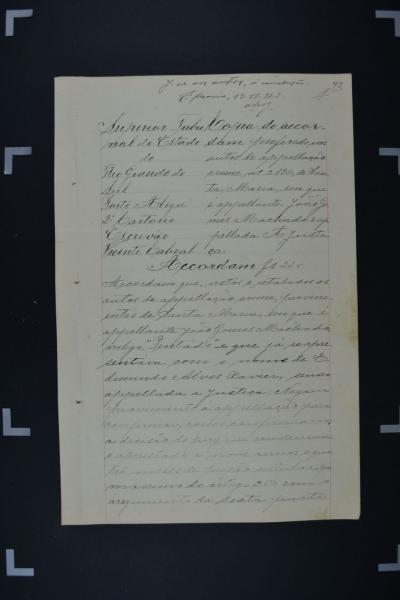 J. aos autos, á conclusão
93
Superior Tribu
nal do Estado
do
Rio Grande do
Sul
Porto Alegre
2º Cartorio
Escrivão
Vicente Cabral
Copia do accor-
dam proferido nos
autos de appellação
crime nº de San
ta Maria, em que
é appellante João Go
mes Machado e ap
pellada A Justi
ça.
Accordam fs 22v
Accordam que, vistos e relatados os
autos de appellação crime, provini
entes de Santa Maria, em que é
appellante João Gomes Machado,
vulgo e que já se apre
sentára com o nome de E
dmundo Alves Xavier, sendo
appellada a Justiça Negam
provimento a appellação para
confirmar, como confirmam,
a decisão do jury que condemnou
o appellado a nove annos e qua
tro mezes de prisão cellular,
maximo do artigo com o
augmento da sexta parte